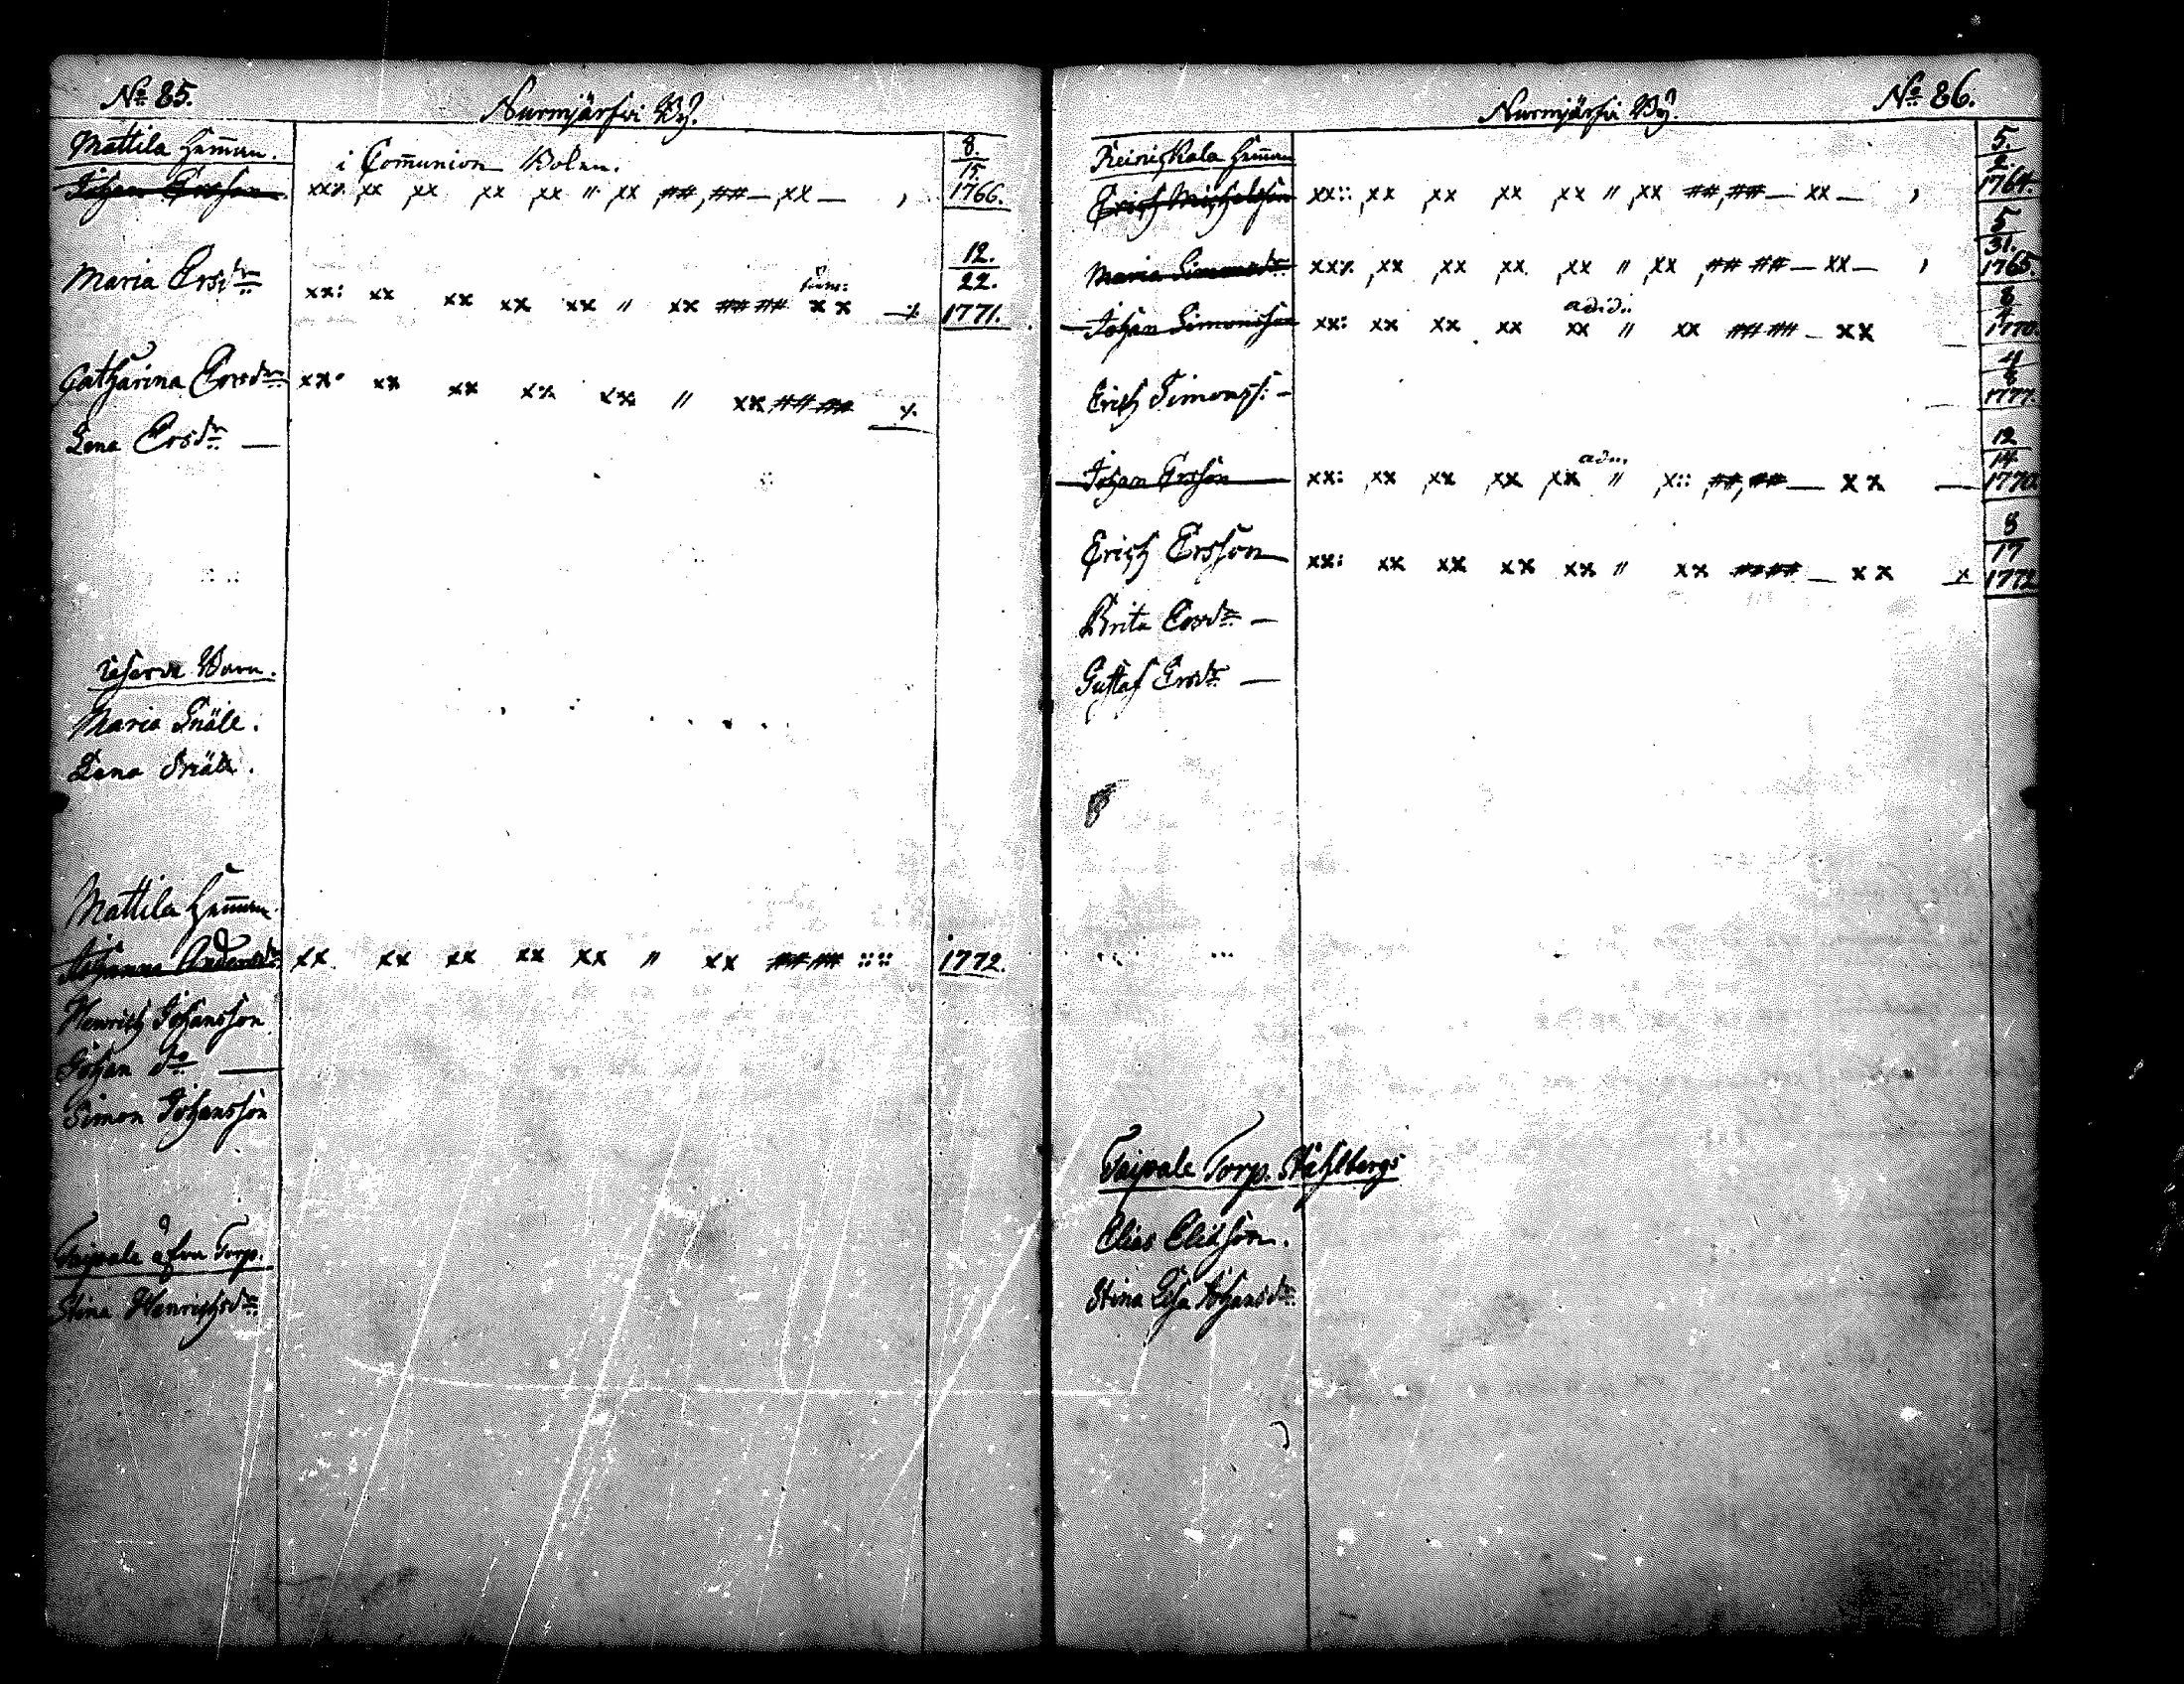 No 85.
Nurmjärfwi By.
Mattila Hem̄an.
i Com̄union Boken.
8.
15.
Johan Ersson xx% xx xx xx xx " xx ## ## — xx —
1766.
12.
22.
Maria Ersdr xx: xx xx xx xx " xx ## ## xx
1771.
Catharina Ersdr xx xx xx xx xx " xx ## ##
Lena Ersdr —
Maria Snäll.
Lena Snäll.
Mattila Hem̄an
Johanna Andersdr xx xx xx xx xx " xx ## ## :: ::
1772.
Henrich Johansson
Johan do —
Simon Johansson
Taipale Torp.
Stina Henrichsdr
Nurmjärfwi By.
No 86.
Heinickala Hem̄an
5.
2.
Erich Michelsson xx:: xx xx xx xx " xx ## ## — xx —
1764.
5
31.
Maria Simonsdr xx% xx xx xx xx " xx ## ## — xx —
1765.
adidi:
8
4
Johan Simonsson xx: xx xx xx xx " xx ## ## — xx
1770.
4
8
Erich Simonss: —
1777.
12
14
Johan Ersson xx: xx xx xx xx " x:: ## ## — xx —
1770.
8
17
Erich Ersson xx: xx xx xx xx " xx ## ## — xx x
1772
Brita Ersdr —
Gustaf Ersdr —
Taipale Torp. Ståhlbergs
Elias Eliasson.
Stina Lisa Johansdr